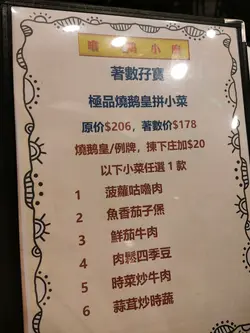 小廚
著數孖寶
極品燒鵝皇拼小菜
原价$206，著數价$178
燒鵝皇/例牌，揀下庄加$20
以下小菜任選 1 款
1 菠蘿咕嚕肉
2 魚香茄子煲
3 鮮茄牛肉
4 肉鬆四季豆
5 時菜炒牛肉
6 蒜茸炒時蔬